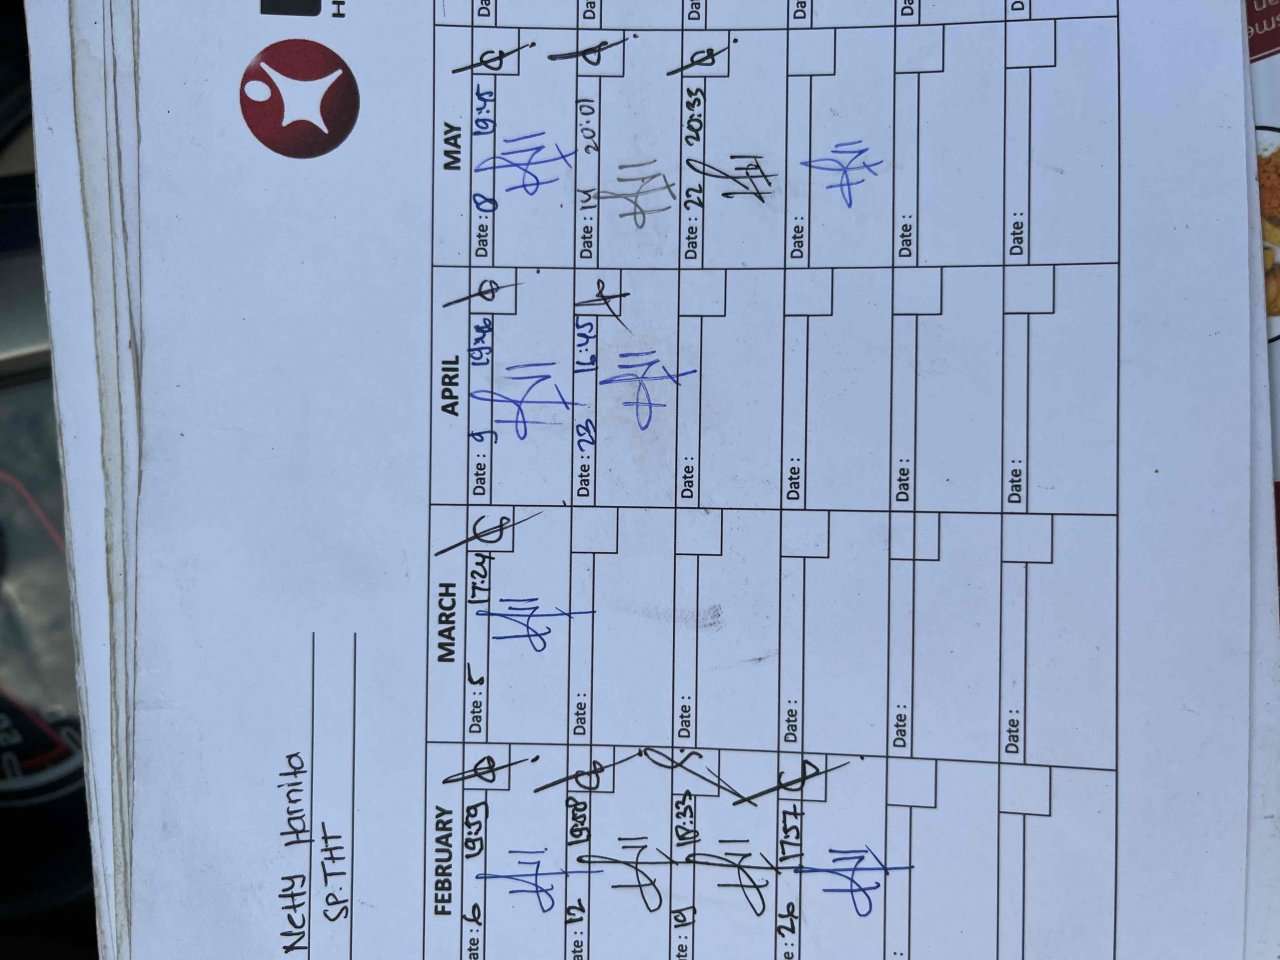 Netty Harnita
SP.THT
FEBRUARY
MARCH
APRIL
MAY
ate : 6 19:59
Date : 5 17:24
Date : 9 19:46
Date : 08 19:45
ate : 12 19:08
Date :
Date : 23 16:45
Date : 14 20:01
te : 19 18:33
Date :
Date :
Date : 22 20:33
e : 26 17:57
Date :
Date :
Date :
:
Date :
Date :
Date :
Date :
Date :
Date :